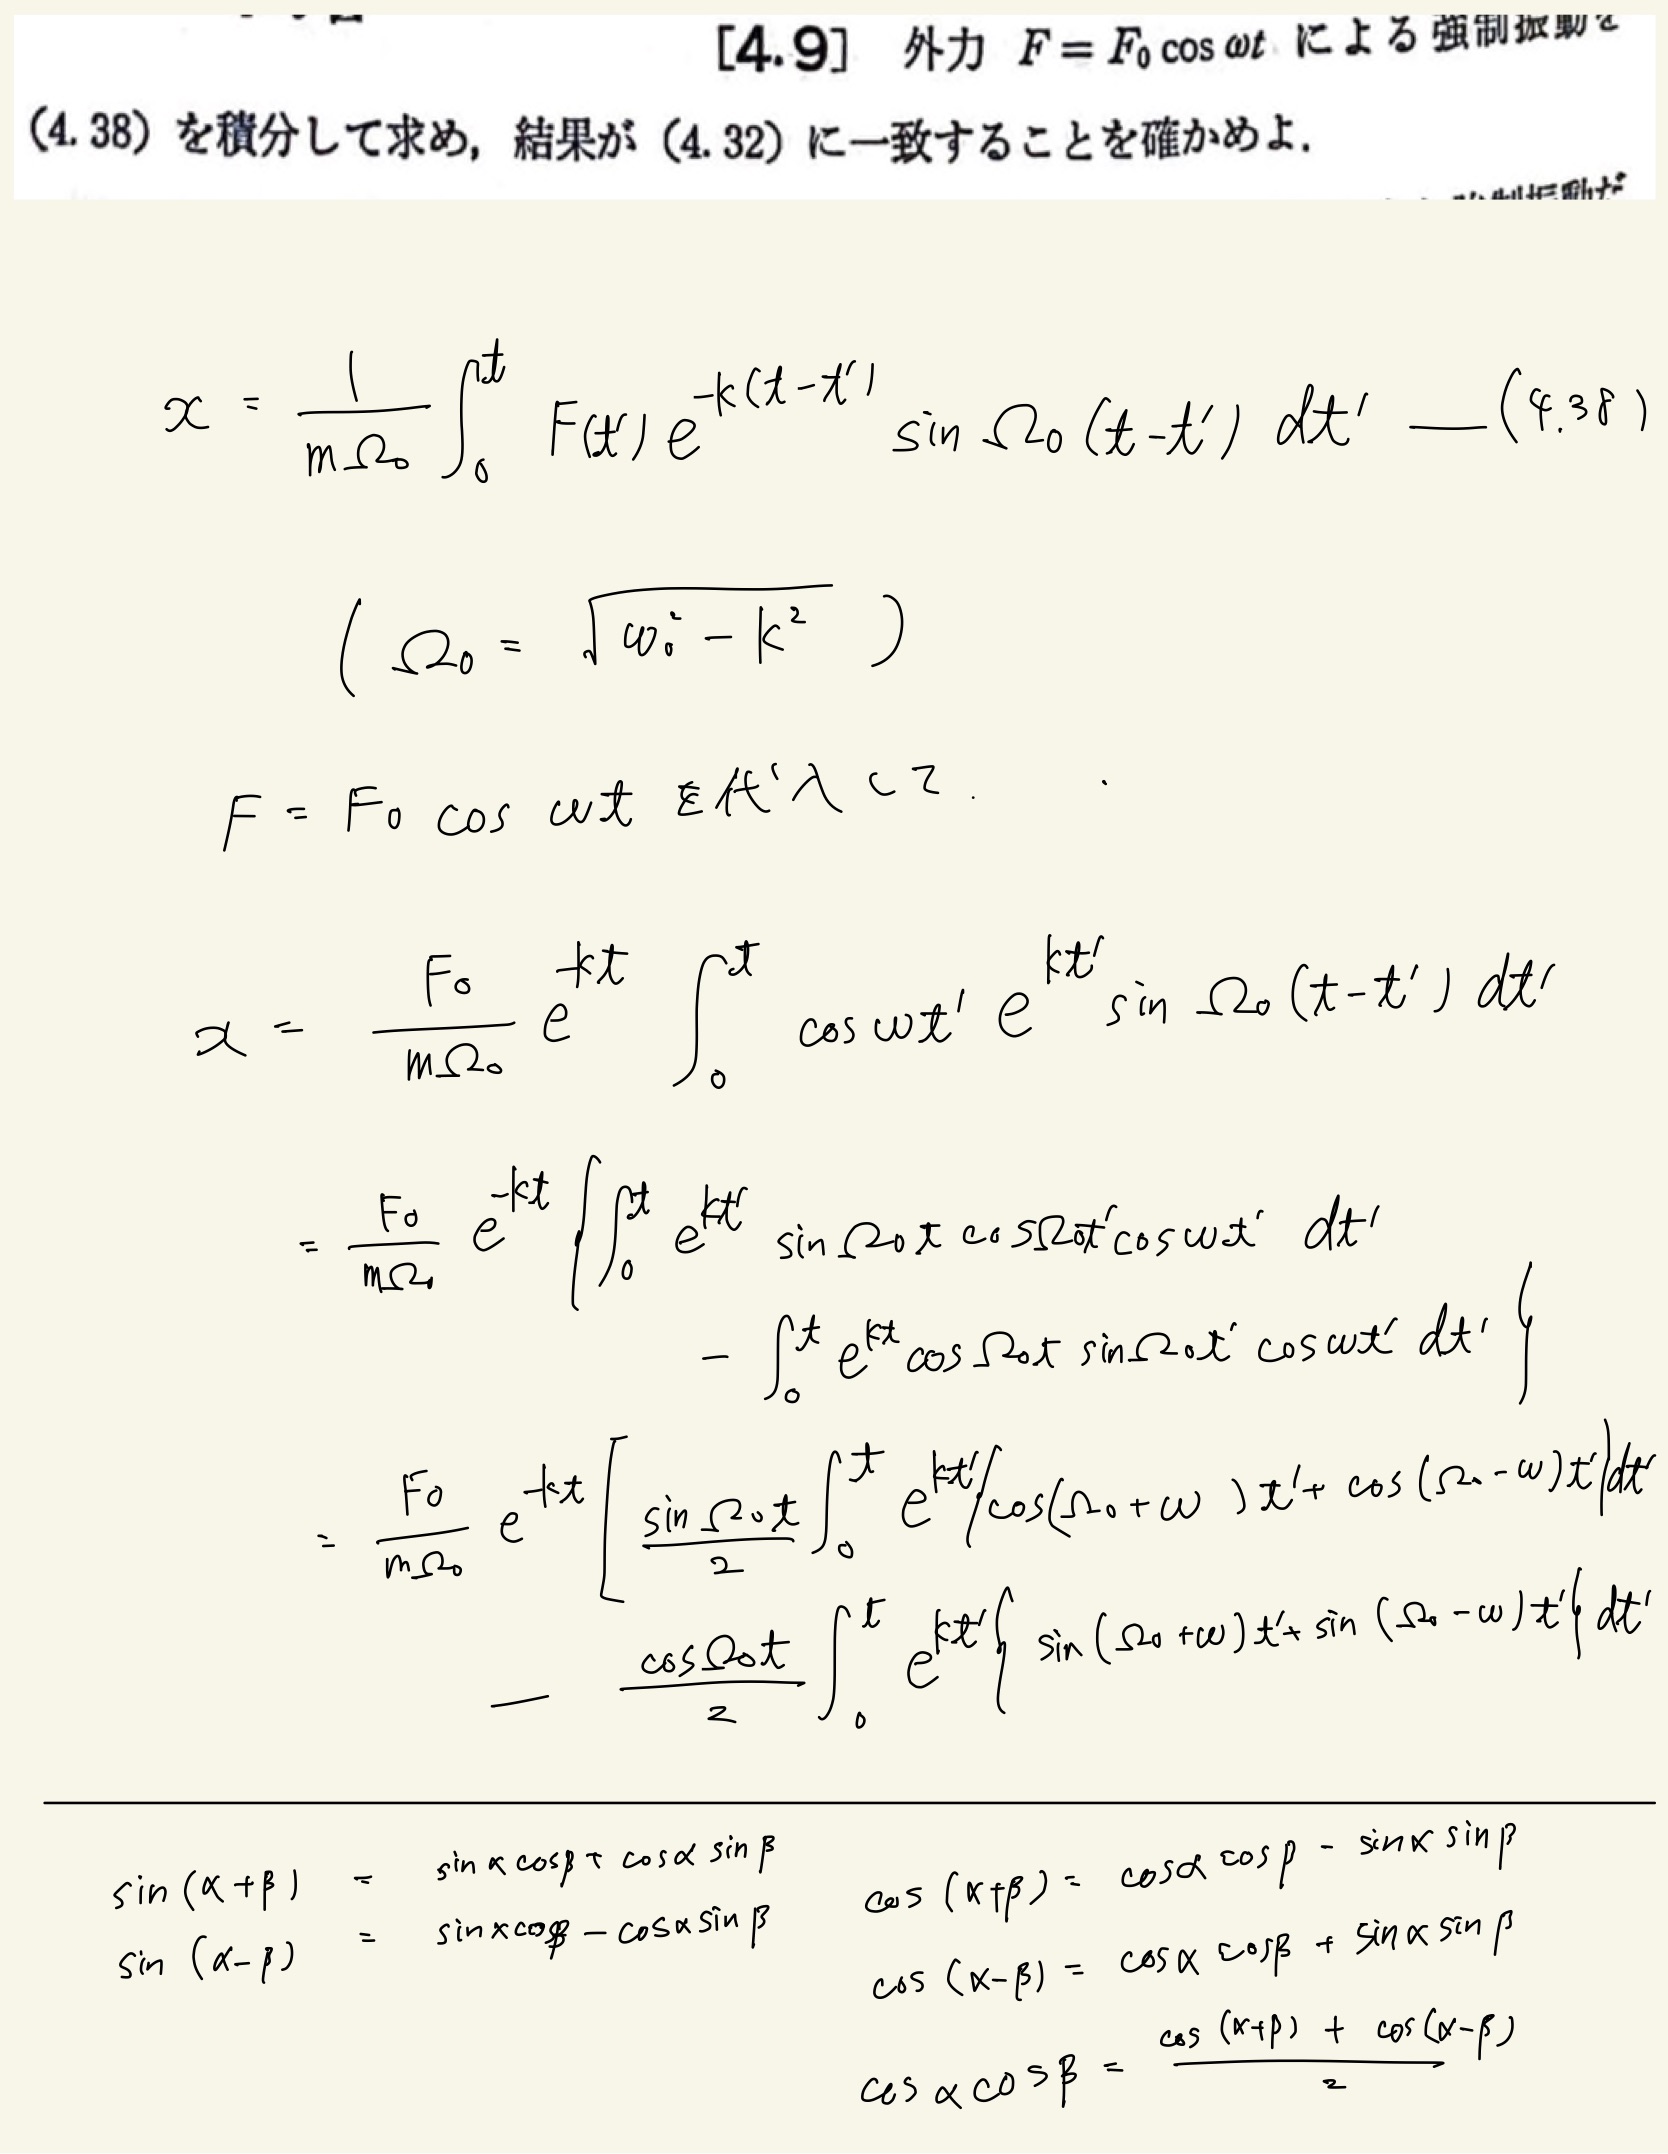 [4.9] 外力 F = F₀ cos ωt による強制振動を
(4.38) を積分して求め，結果が (4.32) に一致することを確かめよ．
x = 1/(mΩ₀) ∫₀ᵗ F(t') e^{-k(t-t')} sin Ω₀(t-t') dt' —(4.38)
( Ω₀ = √(ω₀² - k²) )
F = F₀ cos ωt を代入して.
x = F₀/(mΩ₀) e^{-kt} ∫₀ᵗ cos ωt' e^{kt'} sin Ω₀(t-t') dt'
= F₀/(mΩ₀) e^{-kt} { ∫₀ᵗ e^{kt'} sin Ω₀t cos Ω₀t' cos ωt' dt'
- ∫₀ᵗ e^{kt} cos Ω₀t sin Ω₀t' cos ωt' dt' }
= F₀/(mΩ₀) e^{-kt} [ sin Ω₀t/2 ∫₀ᵗ e^{kt'} {cos(Ω₀+ω)t' + cos(Ω₀-ω)t'} dt'
- cos Ω₀t/2 ∫₀ᵗ e^{kt'} { sin(Ω₀+ω)t' + sin(Ω₀-ω)t' } dt'
sin(α+β) = sin α cos β + cos α sin β
sin(α-β) = sin α cos β - cos α sin β
cos(α+β) = cos α cos β - sin α sin β
cos(α-β) = cos α cos β + sin α sin β
cos α cos β = (cos(α+β) + cos(α-β))/2